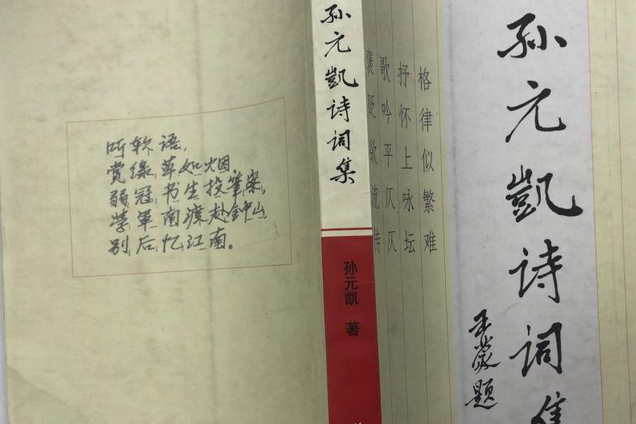 听软语,
赏绿草如烟
弱冠书生投笔案,
学军南渡赴钟山
别后忆江南。
孙元凱诗词集
孙元凯 著
孙元凱诗词集
题
格律似繁难
抒怀上咏坛
歌吟平仄仄
褒贬敢流传